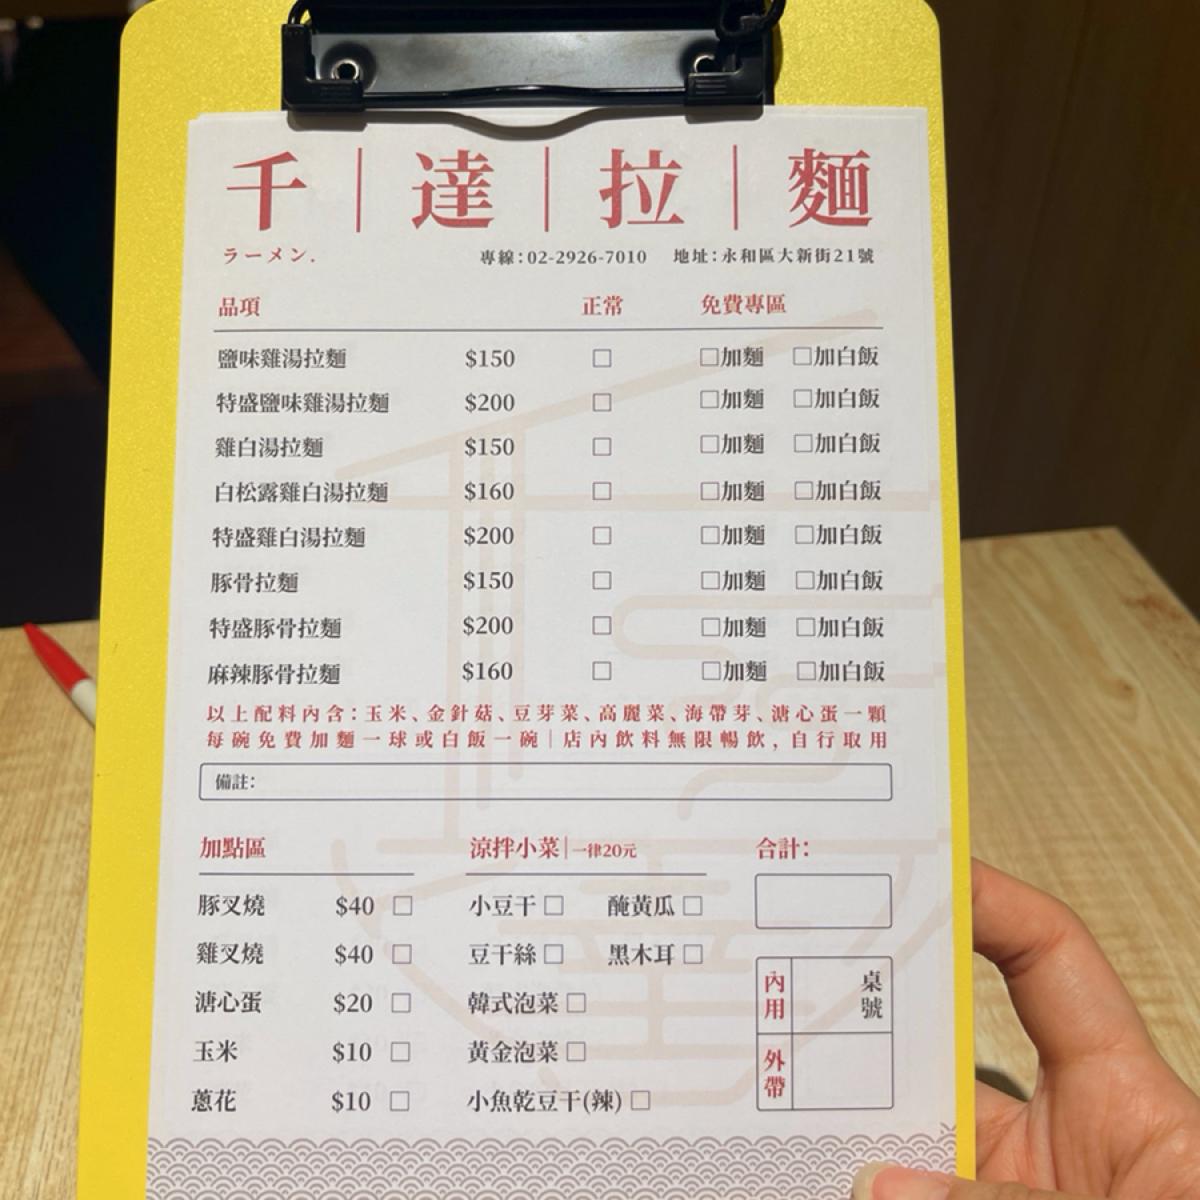 千｜達｜拉｜麵
ラーメン. 專線:02-2926-7010 地址:永和區大新街21號
品項 正常 免費專區
鹽味雞湯拉麵 $150 □ □加麵 □加白飯
特盛鹽味雞湯拉麵 $200 □ □加麵 □加白飯
雞白湯拉麵 $150 □ □加麵 □加白飯
白松露雞白湯拉麵 $160 □ □加麵 □加白飯
特盛雞白湯拉麵 $200 □ □加麵 □加白飯
豚骨拉麵 $150 □ □加麵 □加白飯
特盛豚骨拉麵 $200 □ □加麵 □加白飯
麻辣豚骨拉麵 $160 □ □加麵 □加白飯
以上配料內含:玉米、金針菇、豆芽菜、高麗菜、海帶芽、溏心蛋一顆
每碗免費加麵一球或白飯一碗｜店內飲料無限暢飲,自行取用
備註:
加點區
豚叉燒 $40 □
雞叉燒 $40 □
溏心蛋 $20 □
玉米 $10 □
蔥花 $10 □
涼拌小菜｜一律20元
小豆干 □ 醃黃瓜 □
豆干絲 □ 黑木耳 □
韓式泡菜 □
黃金泡菜 □
小魚乾豆干(辣) □
合計:
內用 桌號
外帶